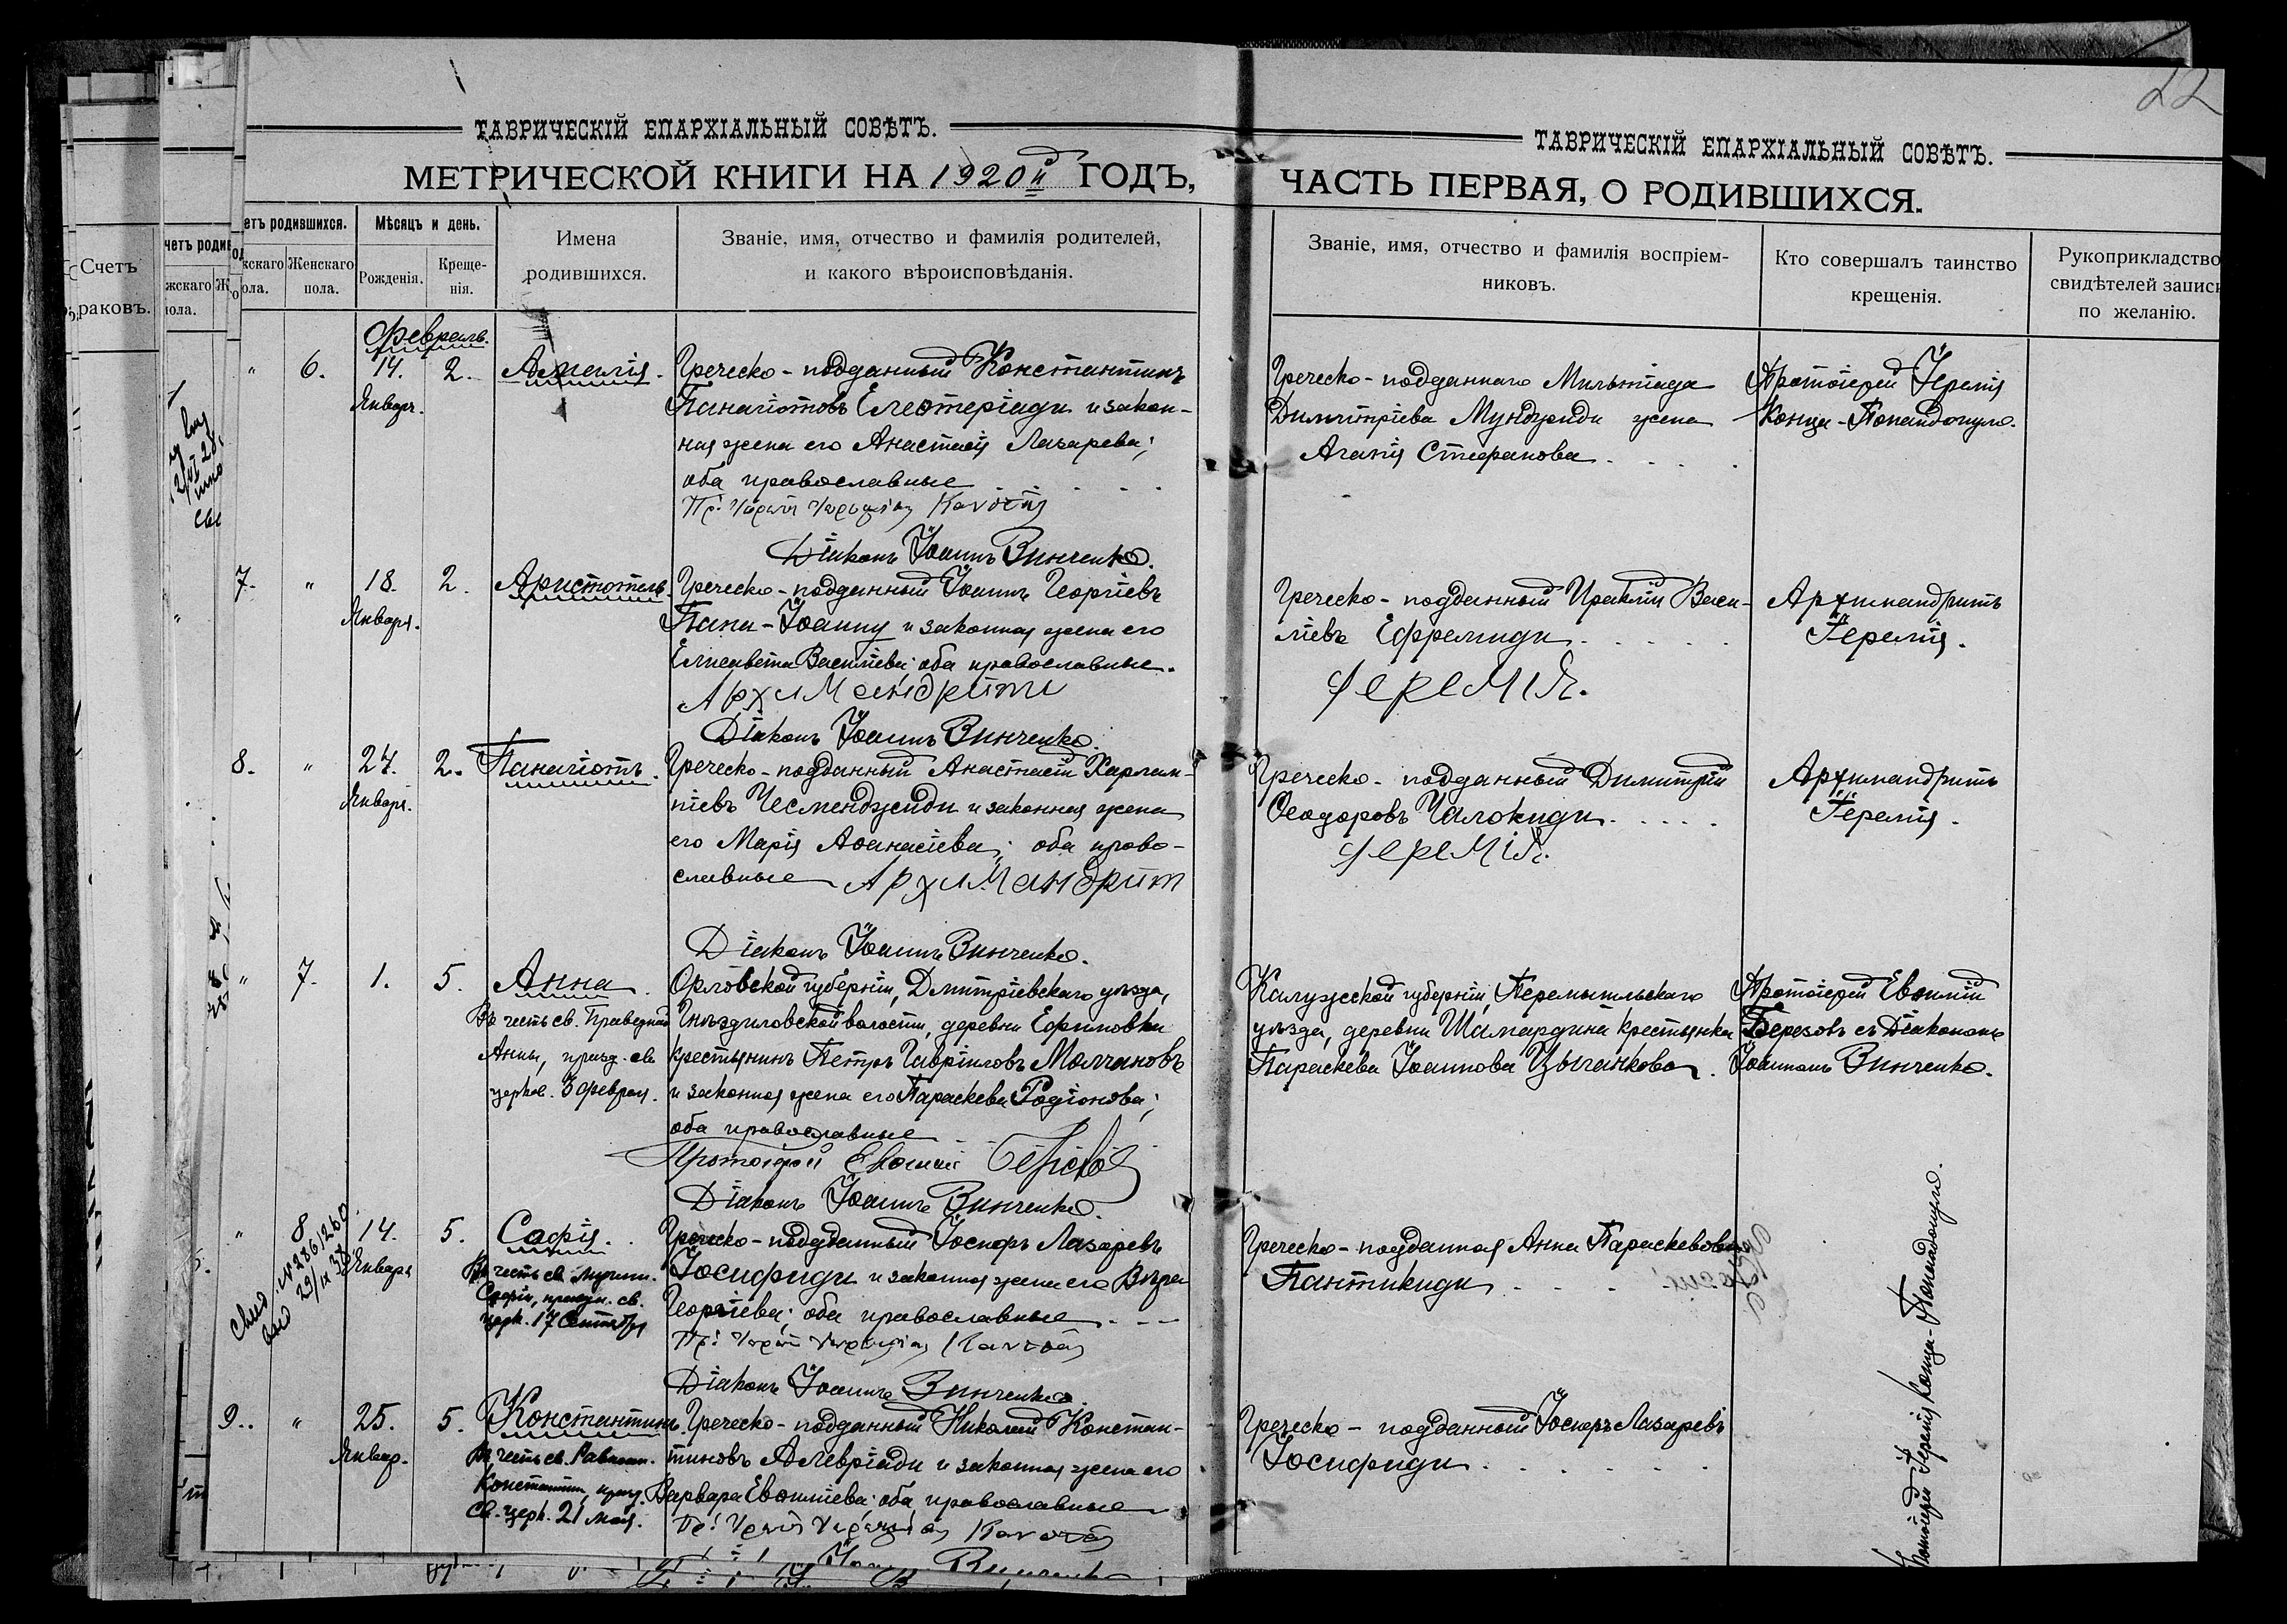 22
ТАВРИЧЕСКІЙ ЕПАРХІАЛЬНЫЙ СОВѢТЪ.
МЕТРИЧЕСКОЙ КНИГИ НА 1920й ГОДЪ,
етъ родившихся.
Мѣсяцъ и день.
Имена
родившихся.
Званіе, имя, отчество и фамилія родителей,
и какого вѣроисповѣданія.
жскаго
ола.
Женскаго
пола.
Рожденія.
Креще-
нія.
Счетъ
раковъ.
ТАВРИЧЕСКІЙ ЕПАРХІАЛЬНЫЙ СОВѢТЪ.
ЧАСТЬ ПЕРВАЯ, О РОДИВШИХСЯ.
Званіе, имя, отчество и фамилія воспріем-
никовъ.
Кто совершалъ таинство
крещенія.
Рукоприкладство
свидѣтелей записи
по желанію.
Февраль.
" 6. 14. 2.
Январ.
Амалія.
Греческо-подданный Константинъ
Панагіотовъ Елевтеріади и закон-
ная жена его Анастасія Лазарева;
оба православные
Діаконъ Іоаннъ Винченко.
Греческо-подданнаго Мильтіада
Димитріева Мунджиди жена
Агапія Стефанова
Протоіерей Іеремія
Конца-Попандопуло.
7. " 18. 2.
Января.
Аристотель.
Греческо-подданный Іоаннъ Георгіевъ
Папа-Іоанну и законная жена его
Елисавета Василіева; оба православные.
Архимандритъ
Діаконъ Іоаннъ Винченко.
Греческо-подданный Ираклій Васи-
ліевъ Ефремиди
Іеремія.
Архимандритъ
Іеремія.
8. " 27. 2.
Января.
Панагіотъ.
Греческо-подданный Анастасій Харлам-
піевъ Чесменджиди и законная жена
его Марія Аѳанасіева; оба право-
славные Архимандрит
Діаконъ Іоаннъ Винченко.
Греческо-подданный Димитрій
Ѳеодоровъ Чалокиди
Іеремія.
Архимандритъ
Іеремія.
" 7. 1. 5.
Анна.
Въ честь св. Праведной
Анны, празд. св.
церков. 3 Феврал.
Орловской губерніи, Дмитріевскаго уѣзда,
Гнѣздиловской волости, деревни Ефимовки
крестьянинъ Петръ Гавріиловъ Молчановъ
и законная жена его Параскева Родіонова;
оба православные
Протоіерей Евѳимій Березовъ
Діаконъ Іоаннъ Винченко.
Калужской губерніи, Перемышльскаго
уѣзда, деревни Шамардина крестьянка
Параскева Іоаннова Цыганкова.
Протоіерей Евѳимій
Березовъ съ Діакономъ
Іоанномъ Винченко.
" 8 14. 5.
Январь
Софія.
Въ честь св. мучен.
Софіи, праздн. св.
церк. 17 Сентября
Греческо-подданный Іосифъ Лазаревъ
Іосифиди и законная жена его Вѣра
Георгіева; оба православные
Діаконъ Іоаннъ Винченко.
Греческо-подданная Анна Параскевова
Пантикиди
9. " 25. 5.
Январ.
Константинъ.
Въ честь св. Равноап.
Константина, празд.
Св. церк. 21 мая.
Греческо-подданный Николай Констан-
тиновъ Алевріади и законная жена его
Варвара Евѳиміева; оба православные
Греческо-подданный Іосифъ Лазаревъ
Іосифиди
Протоіерей Іеремія Конца-Попандопуло.